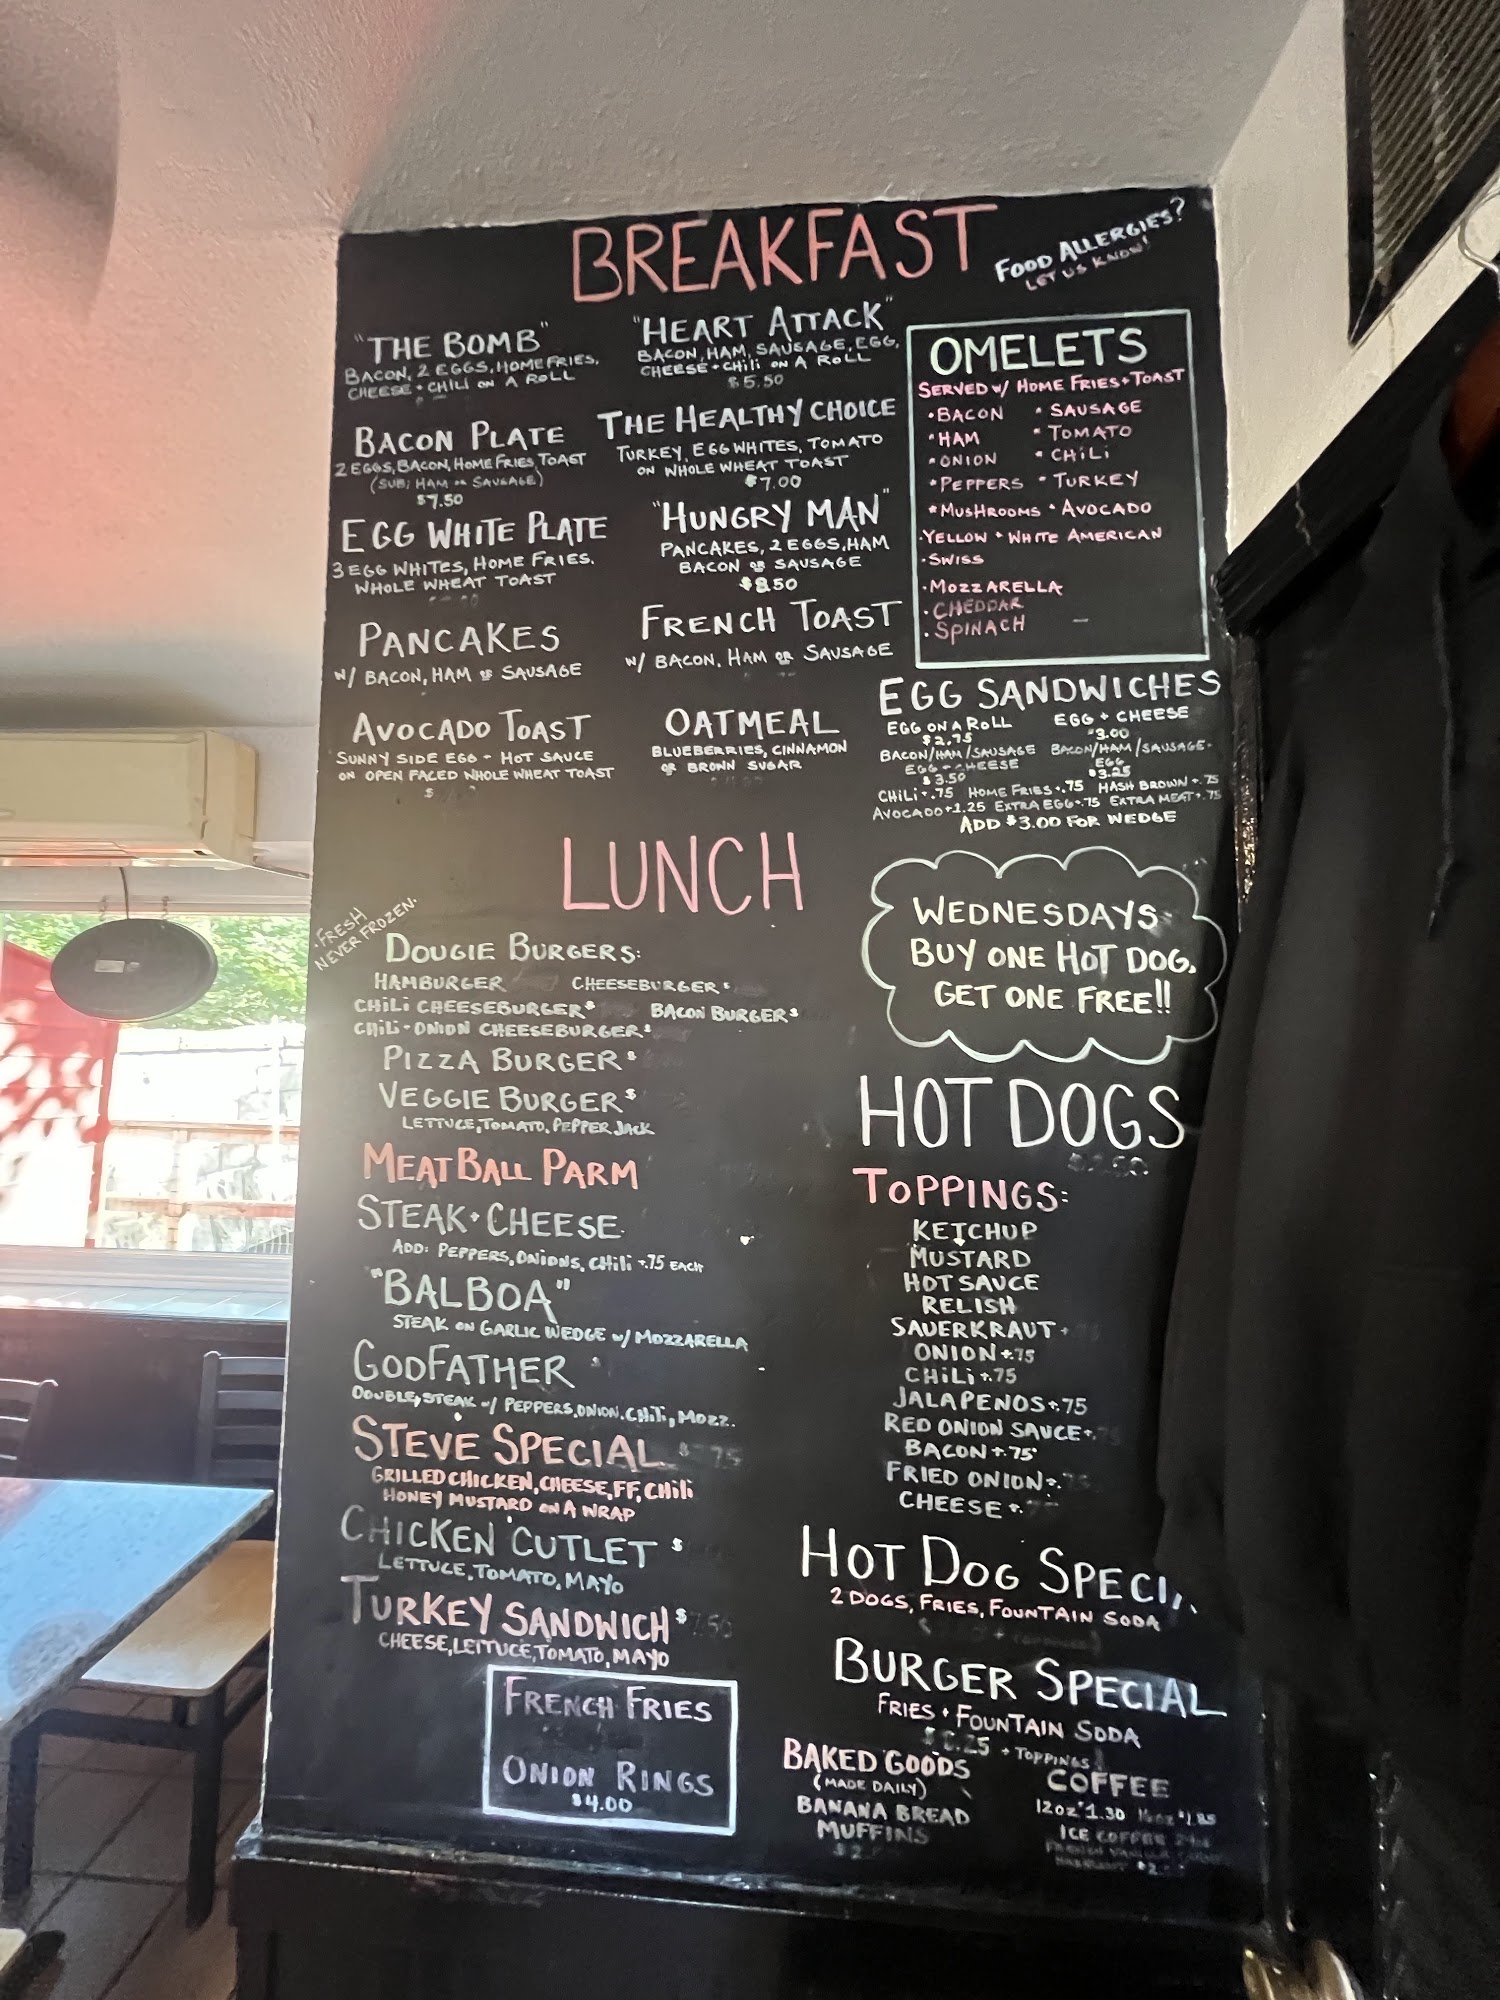 BREAKFAST
FOOD ALLERGIES?
LET US KNOW!
"THE BOMB"
BACON, 2 EGGS, HOME FRIES,
CHEESE + CHILI ON A ROLL
"HEART ATTACK"
BACON, HAM, SAUSAGE, EGG,
CHEESE + CHILI ON A ROLL
$5.50
BACON PLATE
2 EGGS, BACON, HOME FRIES, TOAST
(SUB: HAM OR SAUSAGE)
$7.50
THE HEALTHY CHOICE
TURKEY, EGG WHITES, TOMATO
ON WHOLE WHEAT TOAST
$7.00
EGG WHITE PLATE
3 EGG WHITES, HOME FRIES,
WHOLE WHEAT TOAST
"HUNGRY MAN"
PANCAKES, 2 EGGS, HAM
BACON OR SAUSAGE
$8.50
PANCAKES
W/ BACON, HAM OR SAUSAGE
FRENCH TOAST
W/ BACON, HAM OR SAUSAGE
AVOCADO TOAST
SUNNY SIDE EGG - HOT SAUCE
ON OPEN FACED WHOLE WHEAT TOAST
$
OATMEAL
BLUEBERRIES, CINNAMON
OR BROWN SUGAR
OMELETS
SERVED W/ HOME FRIES + TOAST
• BACON • SAUSAGE
• HAM • TOMATO
• ONION • CHILI
• PEPPERS • TURKEY
• MUSHROOMS • AVOCADO
• YELLOW + WHITE AMERICAN
• SWISS
• MOZZARELLA
• CHEDDAR
• SPINACH
EGG SANDWICHES
EGG ON A ROLL EGG + CHEESE
$2.75 $3.00
BACON/HAM/SAUSAGE BACON/HAM/SAUSAGE
EGG + CHEESE EGG
$3.50 $3.25
CHILI +.75 HOME FRIES +.75 HASH BROWN +.75
AVOCADO +1.25 EXTRA EGG +.75 EXTRA MEAT +.75
ADD $3.00 FOR WEDGE
LUNCH
• FRESH
NEVER FROZEN.
DOUGIE BURGERS:
HAMBURGER CHEESEBURGER $
CHILI CHEESEBURGER $ BACON BURGER $
CHILI-ONION CHEESEBURGER $
PIZZA BURGER $
VEGGIE BURGER $
LETTUCE, TOMATO, PEPPER JACK
MEATBALL PARM
STEAK + CHEESE
ADD: PEPPERS, ONIONS, CHILI +.75 EACH
"BALBOA"
STEAK ON GARLIC WEDGE W/ MOZZARELLA
GODFATHER $
DOUBLE STEAK W/ PEPPERS, ONION, CHILI, MOZZ.
STEVE SPECIAL
GRILLED CHICKEN, CHEESE, FF, CHILI
HONEY MUSTARD ON A WRAP
CHICKEN CUTLET $
LETTUCE, TOMATO, MAYO
TURKEY SANDWICH $7.50
CHEESE, LETTUCE, TOMATO, MAYO
FRENCH FRIES
ONION RINGS
$4.00
WEDNESDAYS
BUY ONE HOT DOG,
GET ONE FREE!!
HOT DOGS
TOPPINGS:
KETCHUP
MUSTARD
HOT SAUCE
RELISH
SAUERKRAUT +
ONION +.75
CHILI +.75
JALAPENOS +.75
RED ONION SAUCE +.
BACON +.75
FRIED ONION +.
CHEESE +.
HOT DOG SPECI
2 DOGS, FRIES, FOUNTAIN SODA
BURGER SPECIAL
FRIES + FOUNTAIN SODA
+ TOPPINGS
BAKED GOODS
(MADE DAILY)
BANANA BREAD
MUFFINS
COFFEE
12oz $1.30 16oz $1.85
ICE COFFEE